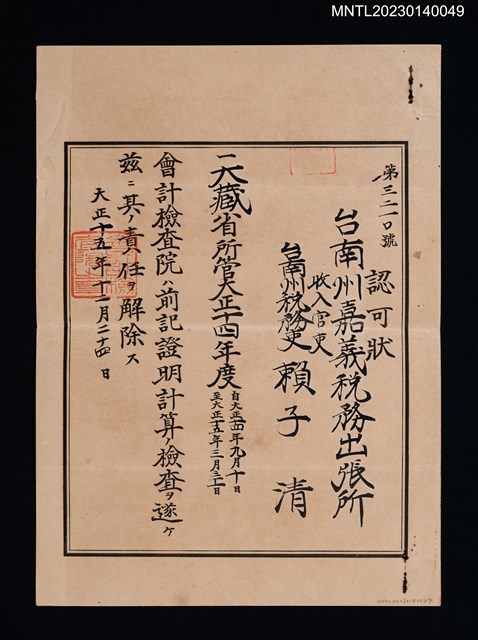 MNTL20230140049
第三二一〇號
認可狀
台南州嘉義税務出張所
收入官吏
台南州税務吏 賴子清
一大藏省所管大正十四年度 自大正十四年九月十日 至大正十五年三月三十一日
會計檢查院ハ前記證明計算檢查ヲ遂ケ
茲ニ其ノ責任ヲ解除ス
大正十五年十二月二十四日